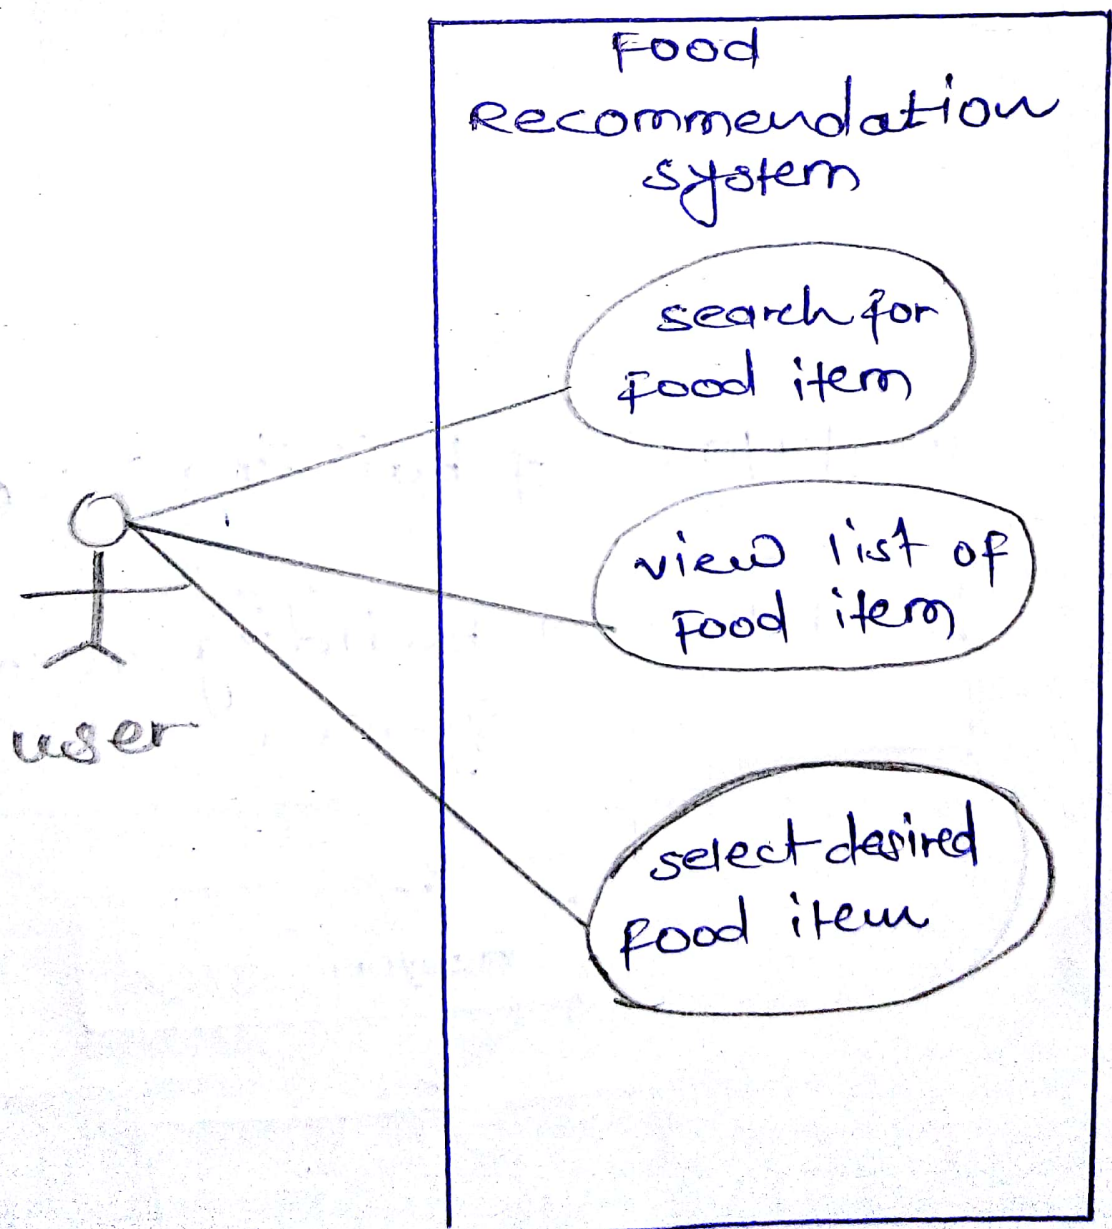 Food
Recommendation
system
search for
Food item
view list of
Food item
user
select desired
Food item